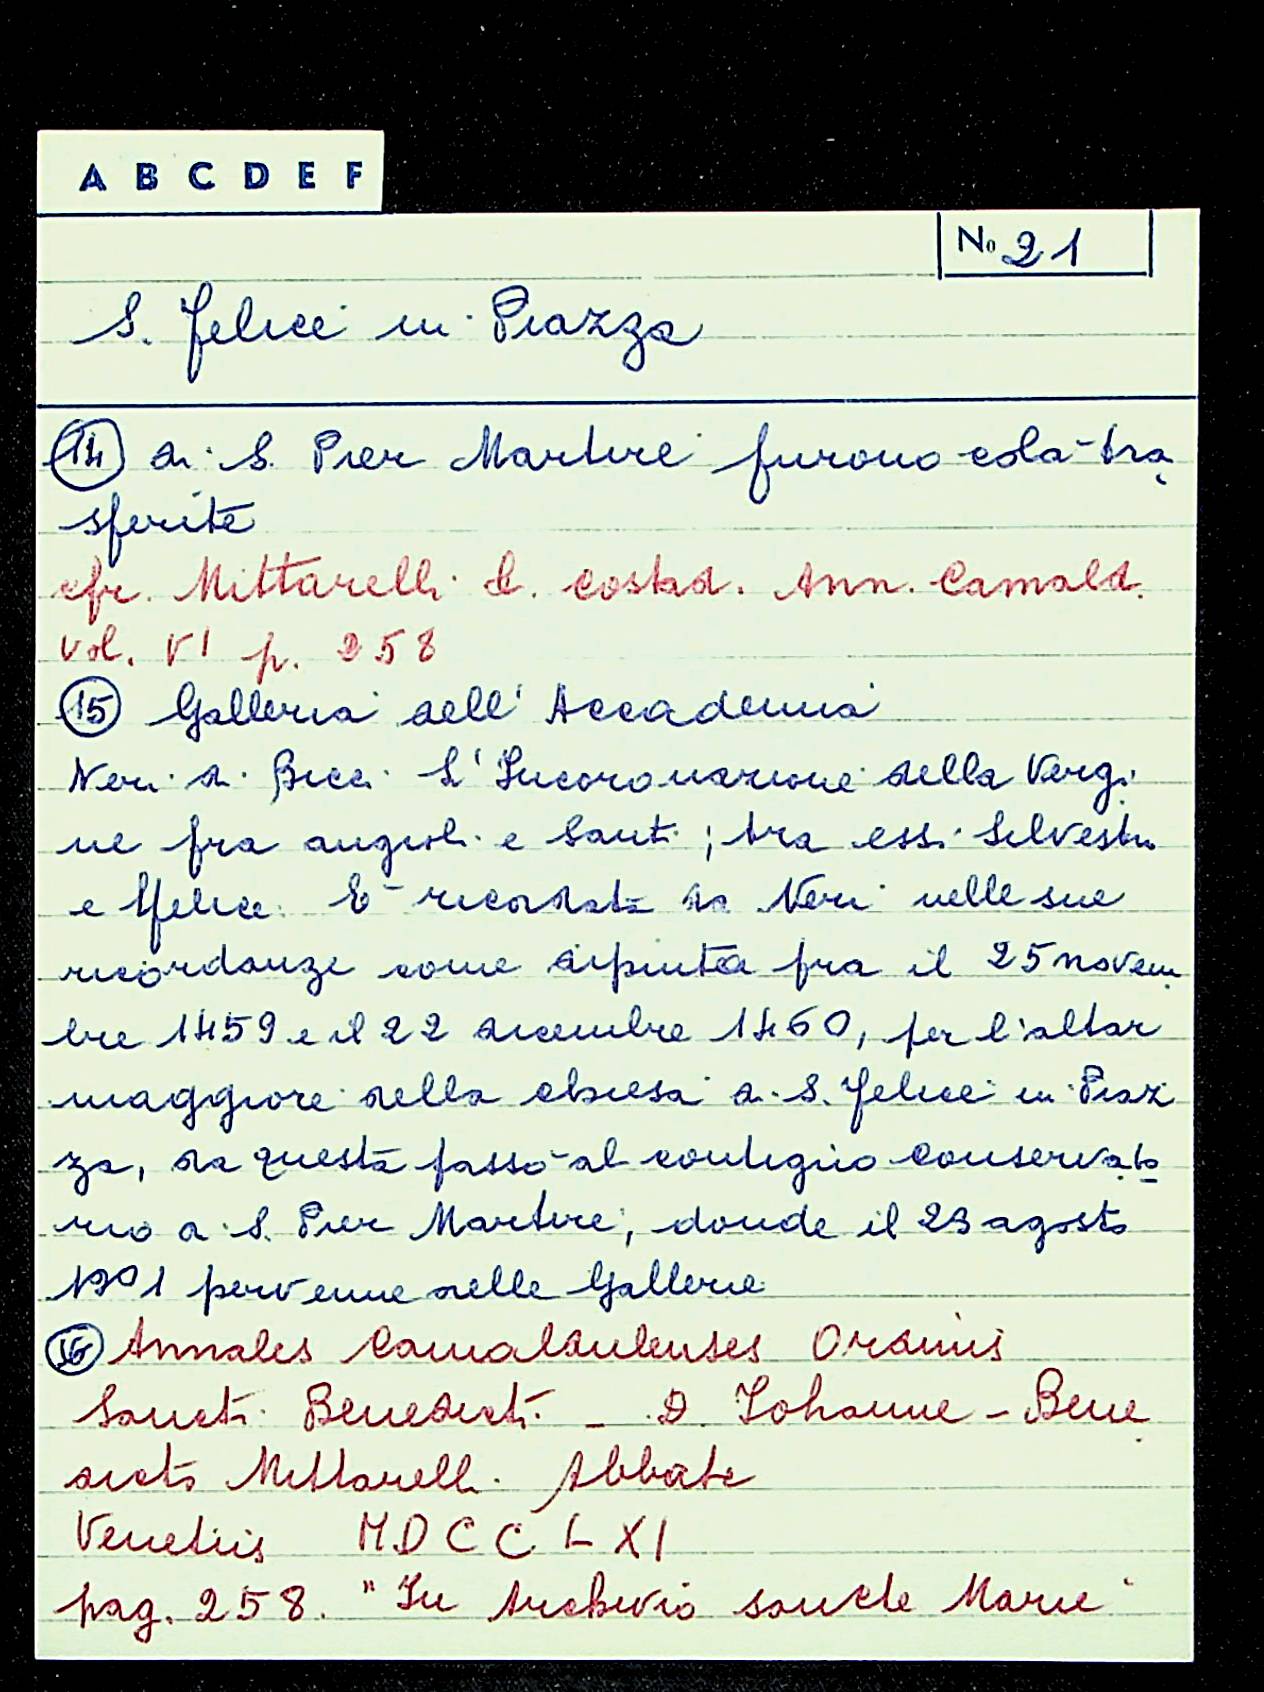 A B C D E F
No 21
S. Felice in Piazza
14 di S. Pier Martire furono colà tra
sferite
cfr. Mittarelli e Costad. Ann. Camald.
vol. VI p. 258
15 Galleria dell' Accademia
Neri di Bicci L'Incoronazione della Vergi
ne fra angioli e Santi; tra essi Silvestro
e Felice. E' ricordata da Neri nelle sue
ricordanze come dipinta fra il 25 novem
bre 1459 e il 22 dicembre 1460, per l'altar
maggiore della chiesa di S. Felice in Piaz
za, da questa passò al contiguo conservato
rio di S. Pier Martire, donde il 23 agosto
1901 pervenne nelle Gallerie
16 Annales Camaldulenses Ordinis
Sancti Benedicti - D. Iohanne - Bene
dicto Mittarelli Abbate
Venetiis MDCCLXI
pag. 258. "In Archivio sancte Marie